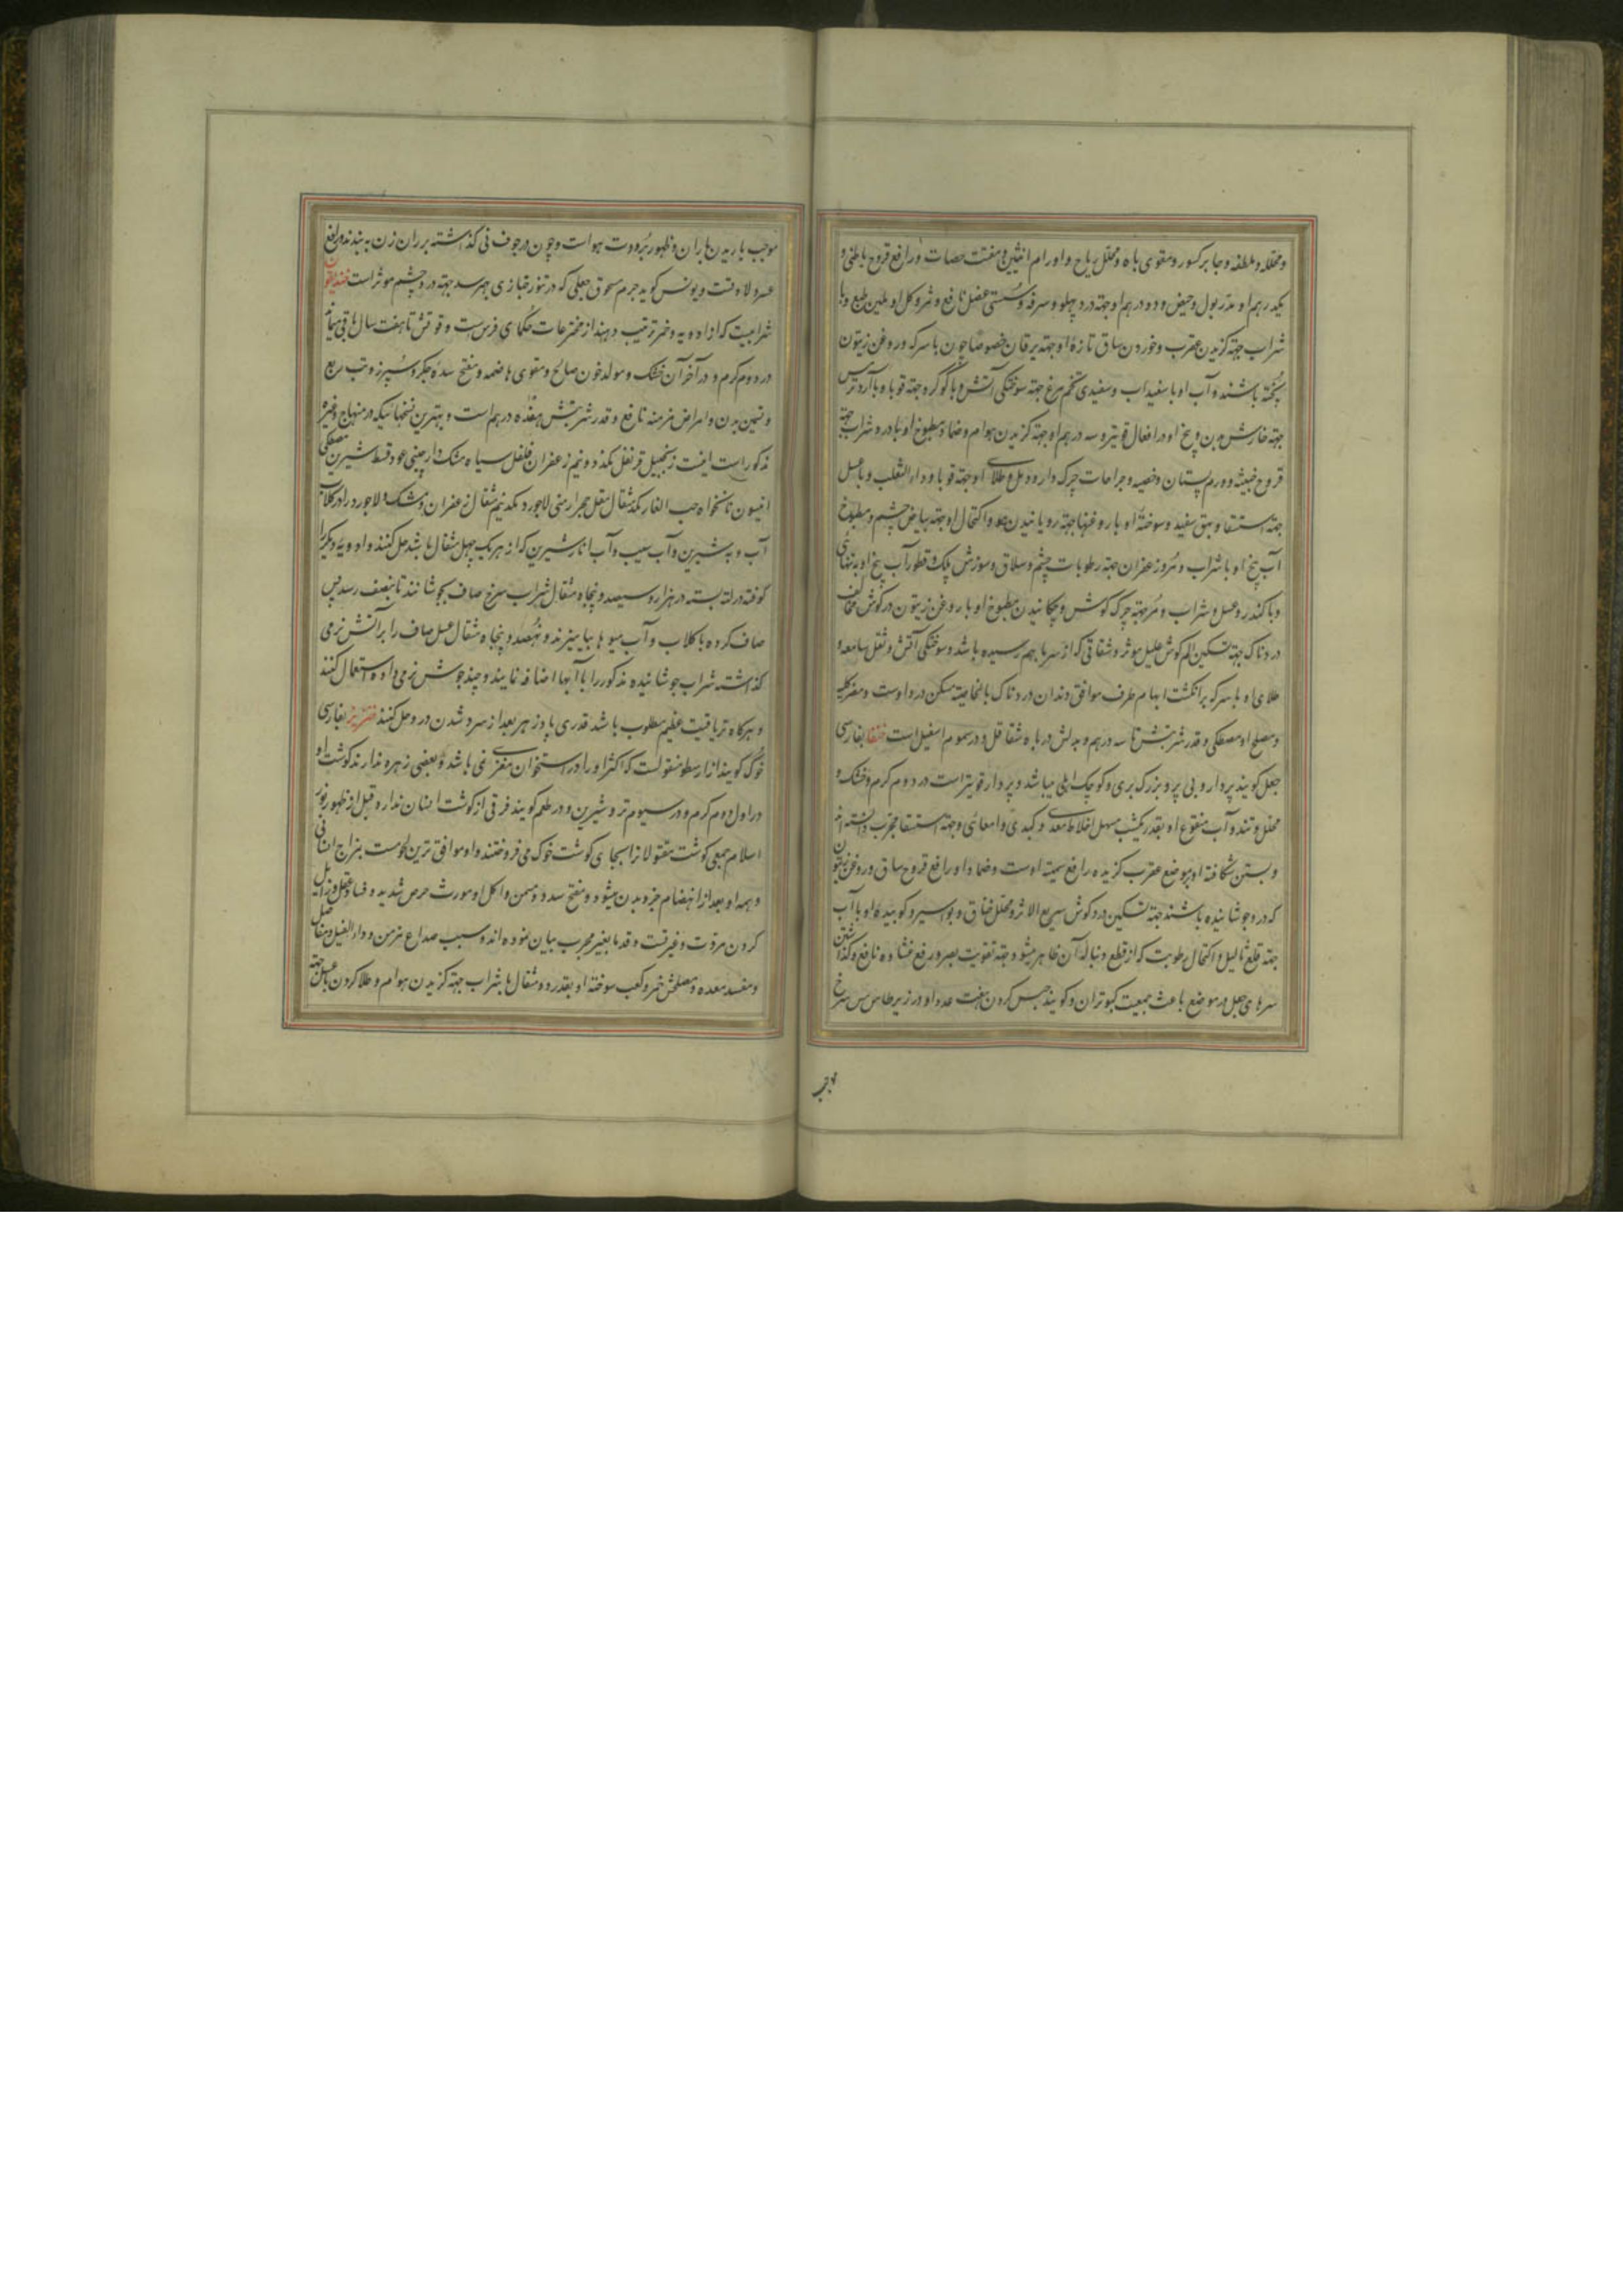 ومحلله وملطفه وجابر کسور ومقوی باه ومحلل ریاح واورام انثیین ومفتت حصات ورافع قروح باطنی و
یکدرهم او مدر بول وحیض ودو درهم او جهته درد پهلو وسرفه وسستی عضل نافع وثمر وکل او ملین طبع وبا
شراب جهته کزیدن عقرب وخوردن ساق تازهٔ او جهته یرقان خصوصا چون با سرکه وروغن زیتون
پخته باشند وآب او با سفیداب وسفیدی تخم مرغ جهته سوختکی آتش وبا کوکرد جهته قوبا وبا آرد ترمس
جهته خارش بدن وبیخ او در افعال قویتر وسه درهم او جهته کزیدن هوام وضماد مطبوخ او با درد شراب جهته
قروح خبیثه وورم پستان وخصیه وجراحات چرک دار ودمل وطلای او جهته قوبا وداء الثعلب وبا عسل
جهته استسقا وبهق سفید وسوختهٔ او با روغنها جهته رویانیدن مو واکتحال او جهته بیاض چشم ومطبوخ
آب بیخ او با شراب ومر وزعفران جهته رطوبات چشم وسلاق وسوزش پلک وقطور آب بیخ او به تنهائی
وبا کندر وعسل وشراب ومر جهته چرک کوش وچکانیدن مطبوخ او با روغن زیتون در کوش مخالف
دردناک جهته تسکین الم کوش علیل موثر وشقاقی که از سرما بهم رسیده باشد وسوختکی آتش وثقل سامعه و
طلای او با سرکه بر انکشت ابهام طرف موافق دندان دردناک بالخاصیه مسکن درد اوست ومضر کلیه
ومصلح او مصطکی وقدر شربتش تا سه درهم وبدلش در باه شقاقل ودر سموم اسقیل است خنفسا بفارسی
جعل کویند پردار وبی پر وبزرک بری وکوچک اهلی میباشد وپردار قویتر است در دوم کرم وخشک و
محلل وتند وآب منقوع او بقدر یکشب مسهل اخلاط معدی وکبدی وامعائی وجهته استسقا مجرب دانسته اند
وبستن شکافتهٔ او بر موضع عقرب کزیده رافع سمیتهٔ اوست وضماد او رافع قروح ساق وروغن زیتون
که در او جوشانیده باشند جهته تسکین درد کوش سریع الاثر ومحلل خناق وبواسیر وکوبیدهٔ او با آب
جهته قلع ثالیل واکتحال رطوبت که از قطع دنبالهٔ آن ظاهر میشود جهته تقویت بصر ورفع غشاوه نافع وکذاشتن
سرهای جعل در موضع باعث جمعیت کبوتران وکویند حبس کردن هفت عدد او در زیر طاس مس سرخ
موجب
موجب باریدن باران وظهور برودت هواست وچون در جوف نی کذاشته بر ران زن به بندند رافع
عسر ولادتست ویونس کوید جرم مسحوق جعلی که در تنور خبازی بهم رسد جهته درد چشم موثر است خندیقون
شرابیست که از ادویه وخمر ترتیب دهند از مخترعات حکمای فرس است وقوتش تا هفت سال باقی میماند
در دوم کرم ودر آخر آن خشک ومولد خون صالح ومقوی هاضمه ومفتح سدهٔ جکر وسپرز وجهته تب ربع
وتسمین بدن وامراض مزمنه نافع وقدر شربتش هفده درهم است وبهترین نسخهائیکه در منهاج وغیره
مذکور است اینست زنجبیل قرنفل یکمد ونیم زعفران فلفل سیاه مشک دارچینی عود قسط شیرین مصطکی
انیسون نانخواه حب الغار یکمثقال مقل حجر ارمنی لاجورد یکمد نیم مثقال زعفران ومشک ولاجورد را در کلاب
آب وبه شیرین وآب سیب وآب انار شیرین که از هر یک چهل مثقال باشد حل کنند وادویهٔ دیکر را
کوفته در لته بسته در هزار وسیصد وپنجاه مثقال شراب سرخ صاف بجوشانند تا بنصف رسد پس
صاف کرده با کلاب وآب میوها بیامیزند ونهصد وپنجاه مثقال عسل صاف را بر آتش نرمی
کذاشته شراب جوشانیدهٔ مذکور را با آبها اضافه نمایند وچند جوش نرمی داده استعمال کنند
وهرکاه تریاقیت عظیم مطلوب باشد قدری پادزهر بعد از سرد شدن در او حل کنند خنزیر بفارسی
خوک کویند از ارسطو منقولست که اکثر او را در استخوان مغزی نمی باشد وبعضی زهره ندارند کوشت او
در اول دوم کرم ودر سیوم تر وشیرین ودر طعم کویند فرقی از کوشت انسان ندارد وقبل از ظهور نور
اسلام جمعی کوشت مقتولا نرا بجای کوشت خوک می فروختند واو موافق ترین لحومست بمزاج انسانی
وهمه او بعد از انهضام جزو بدن میشود ومفتح سدد ومسمن واکل او مورث حرص شدید وفساد عقل وزایل
کردن مروت وغیرتست وقدما بغیر مجرب بیان نموده اند وسبب صداع مزمن وداء الفیل ومفاصل
ومفسد معده ومصلحش خمر وکعب سوختهٔ او بقدر دو مثقال با شراب جهته کزیدن هوام وطلا کردن با عسل جهته